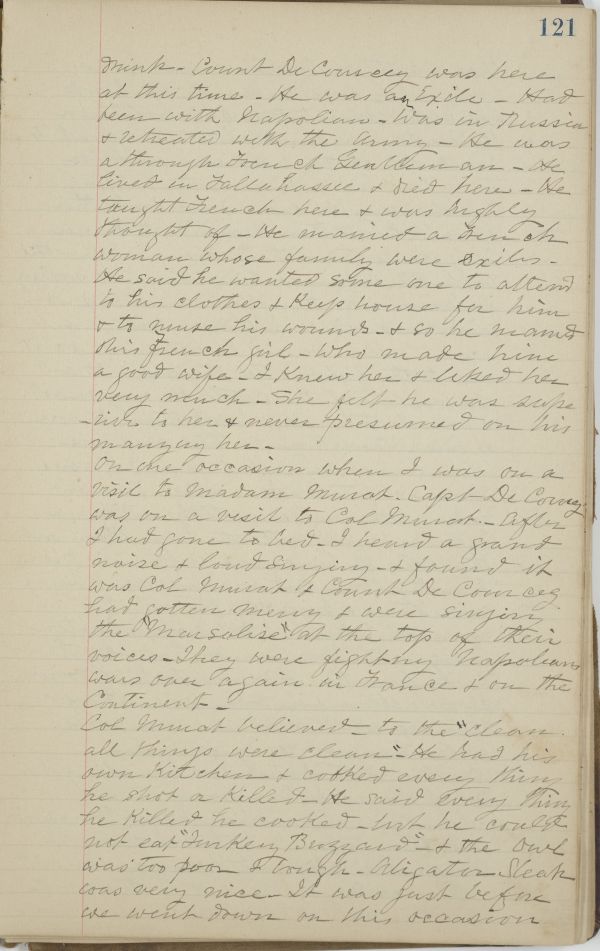 121
drink - Count De Courcey was here
at this time - He was an Exile - Had
been with Napolian - Was in Russia
& retreated with the Army - He was
a through French Gentleman - He
lived in Tallahassee & died here - He
taught French here & was highly
thought of - He married a French
woman whose family were exiles -
He said he wanted some one to attend
to his clothes & Keep house for him
& to nurse his wounds - & so he married
this French girl - Who made him
a good wife - I Knew her & liked her
very much - She felt he was supe
-rior to her & never presumed on his
marrying her -
On one occasion when I was on a
visit to Madam Murat. Capt De Courcey
was on a visit to Col Murat. - After
I had gone to bed - I heard a grand
noise & loud singing - & found it
was Col Murat & Count De Courcey
had gotten merry & were singing
the "Marsalise" at the top of their
voices - They were fighting Napoleans
wars over again in France & on the
Continent -
Col Murat believed - to the "clean
all things were clean" - He had his
own Kitchen & cooked every thing
he shot or Killed - He said every thing
he Killed he cooked - but he could
not eat "Turkey Buzzard" - & the Owl
was too poor & tough - Aligator Steak
was very nice - It was just before
we went down on this occasion